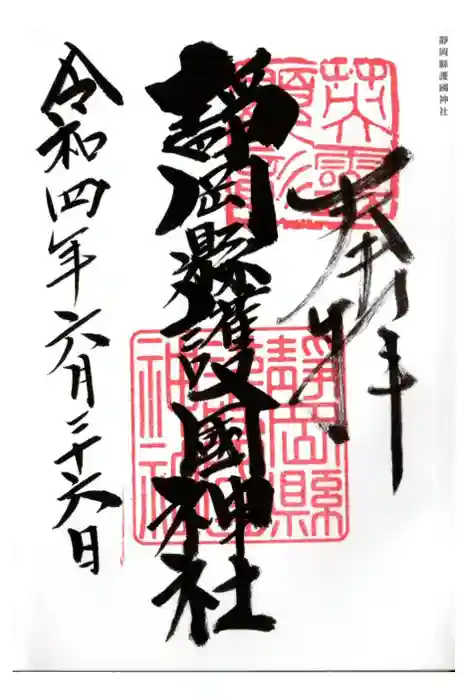 靜岡縣護國神社
奉拝
英靈
顯彰
靜岡縣護國神社
靜岡縣
護國
神社
令和四年六月二十六日